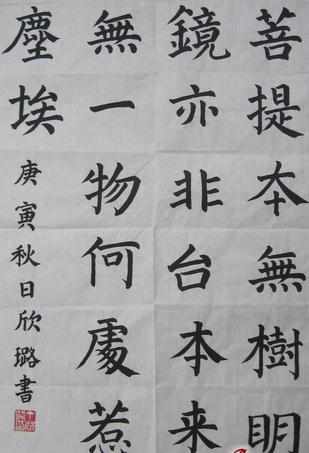 菩提本無樹明
鏡亦非台本来
無一物何處惹
塵埃
庚寅秋日欣璐書